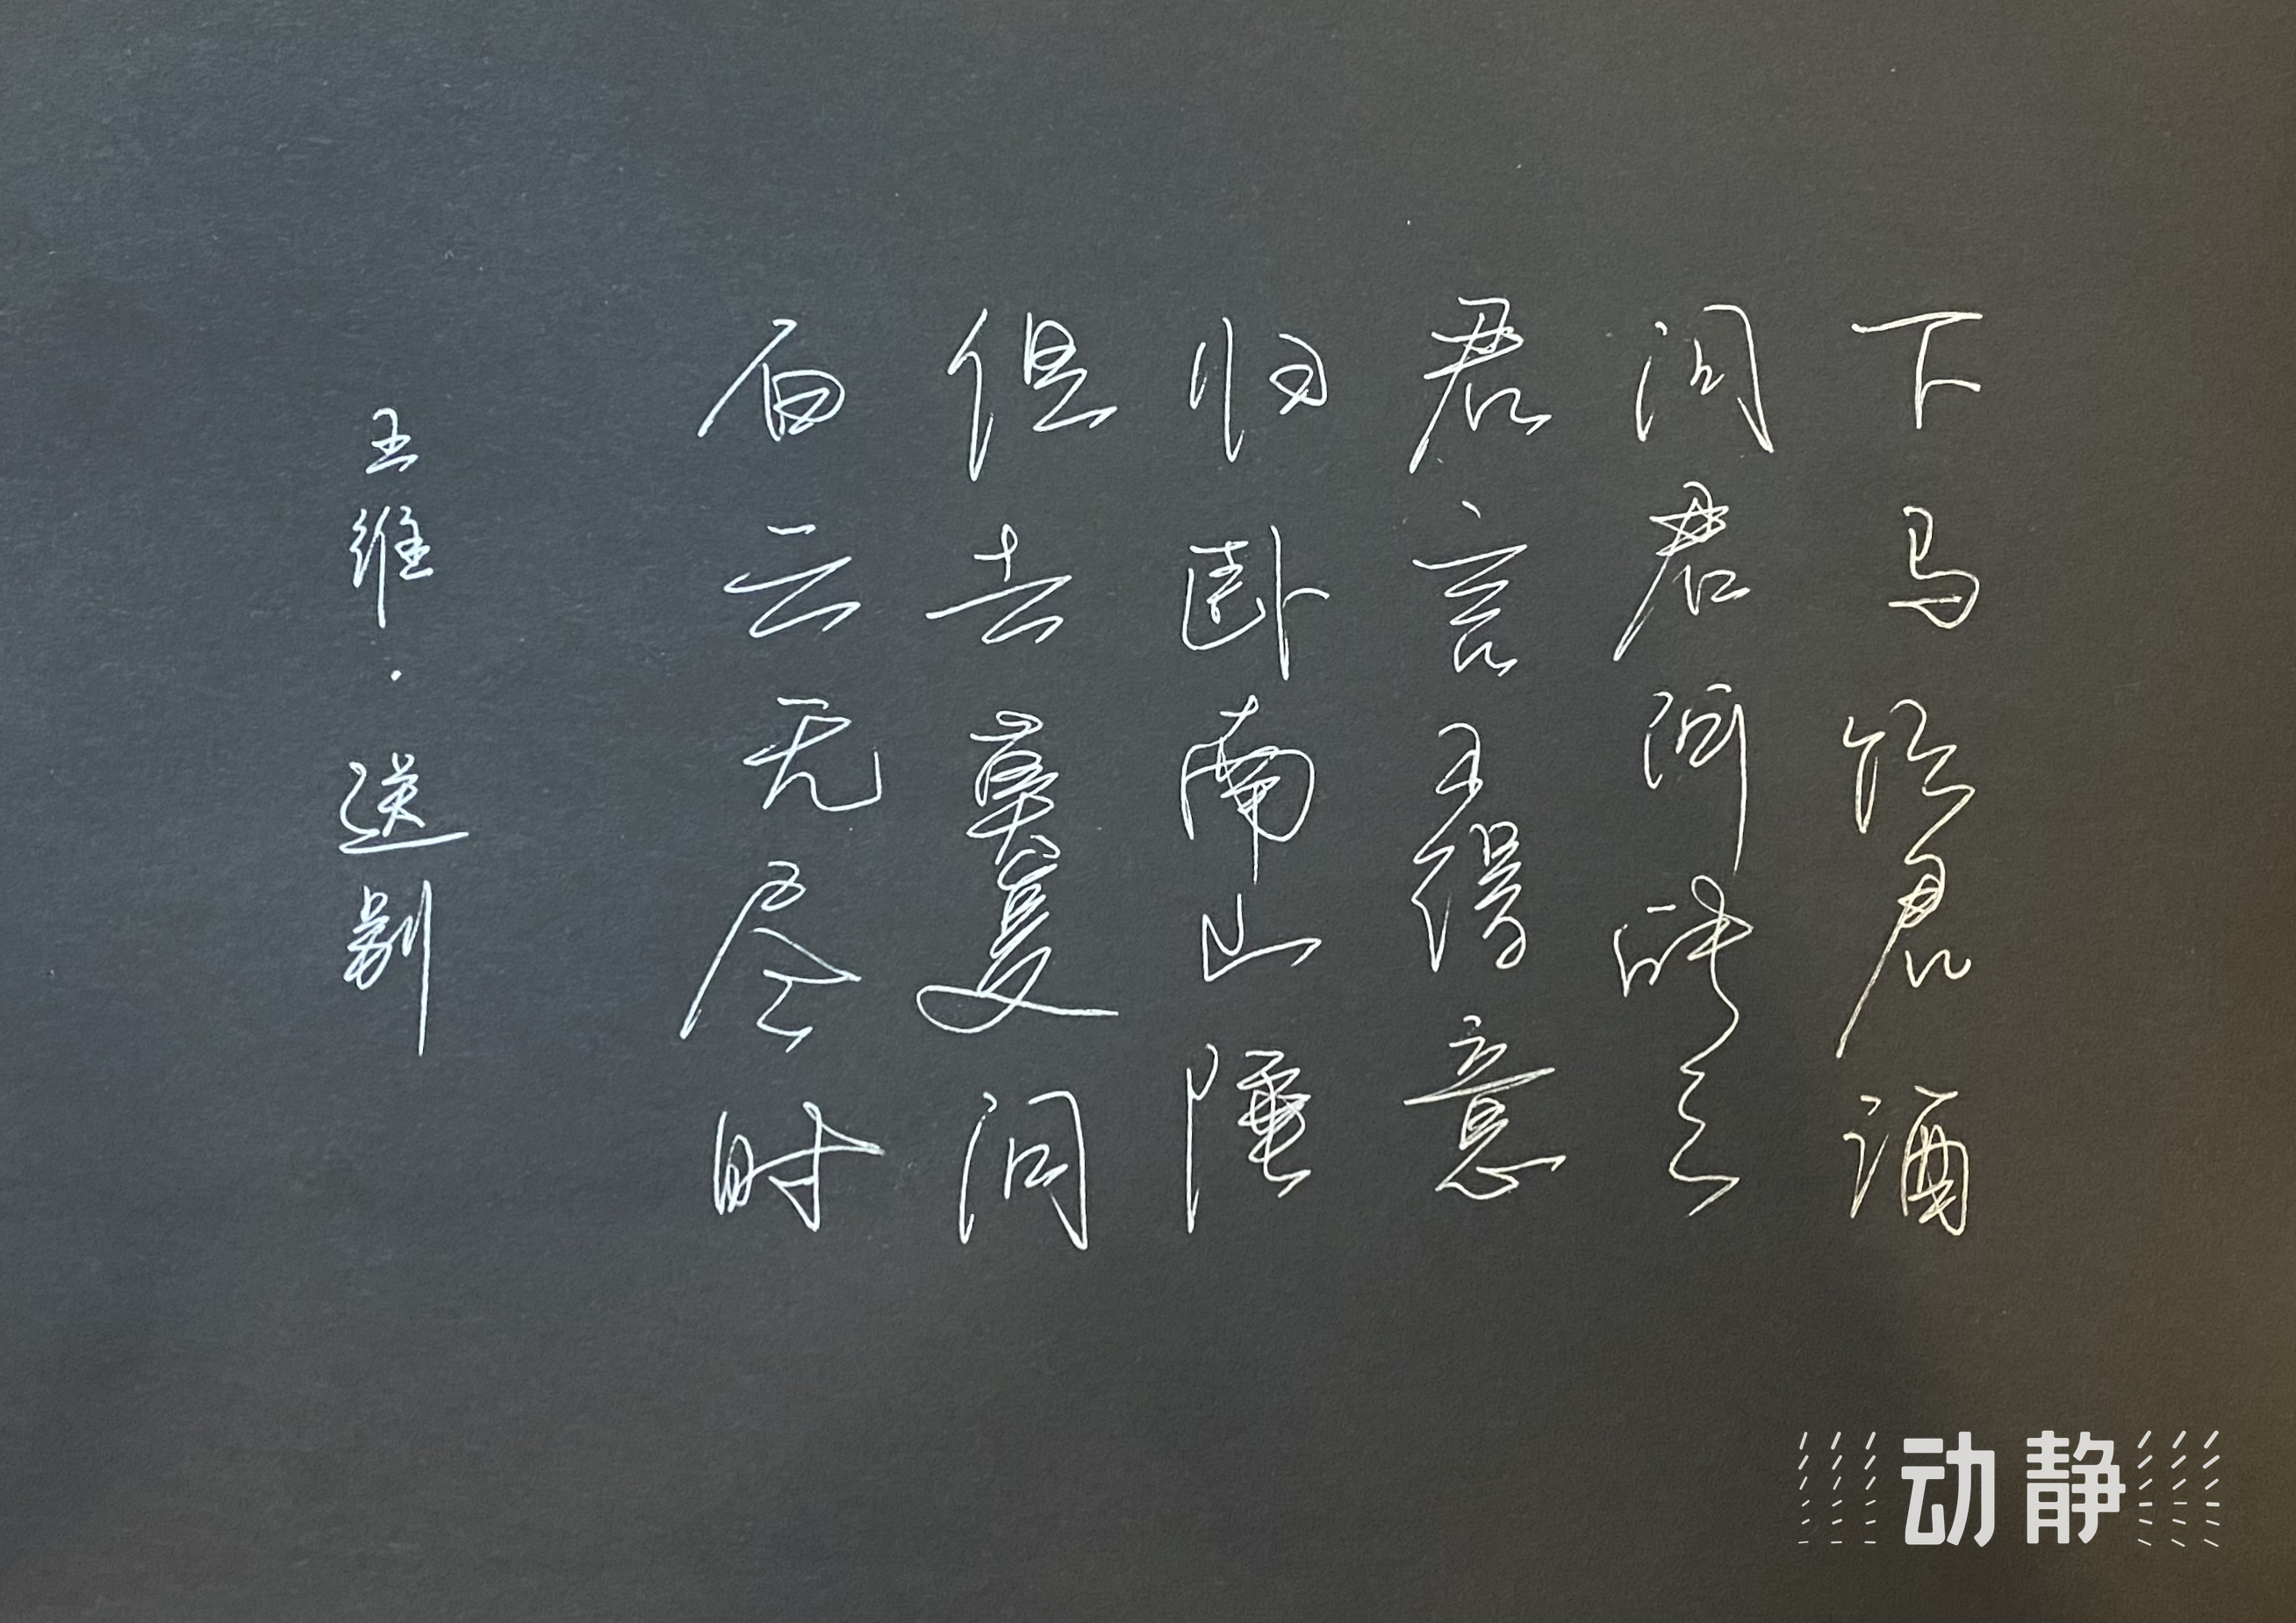 下马饮君酒
问君何所之
君言不得意
归卧南山陲
但去莫复问
白云无尽时
王维·送别
动静